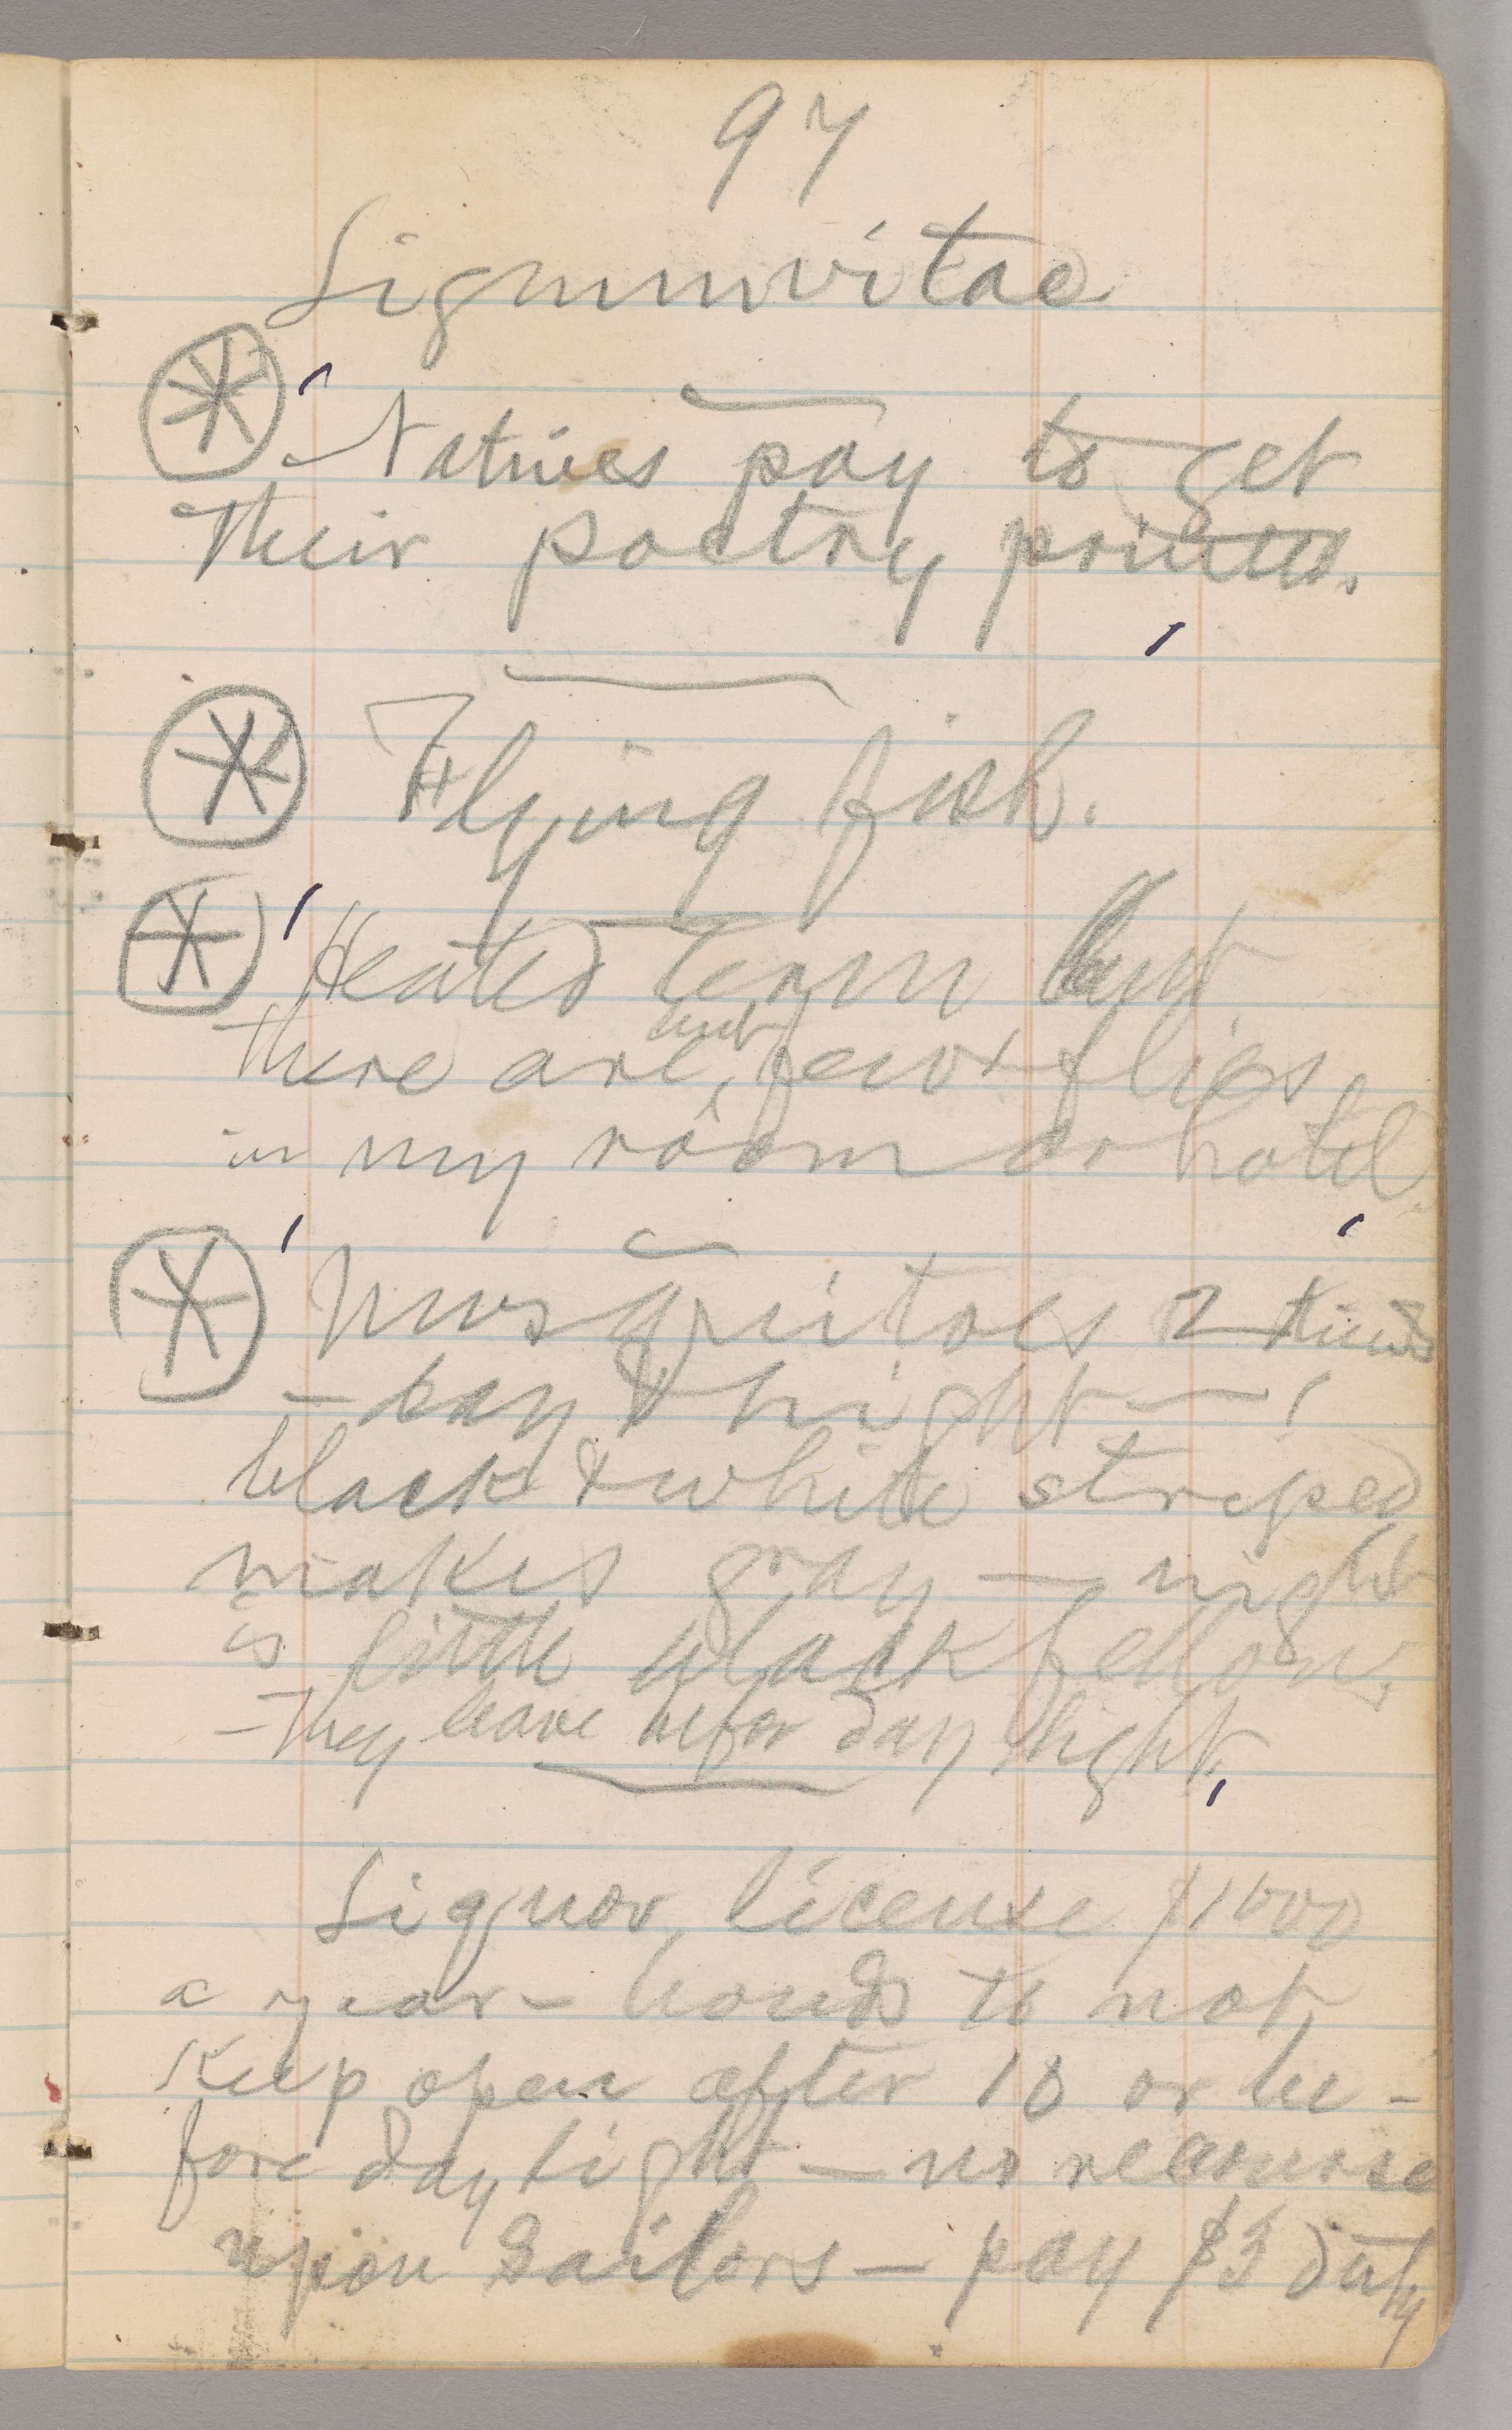 97
Lignumvitae
Natives pay to get
their poetry printed.
Flying fish.
Heated term but
there are but few flies
in my room or hotel.
Musquitoes 2 kinds
— day & night — 1
black & white striped
makes gray — night
is little black fellow,
— They leave before daylight.
Liquor, license $1000
a year — bonds to not
keep open after 10 or be-
fore daylight — no recourse
upon sailors — pay $3 duty